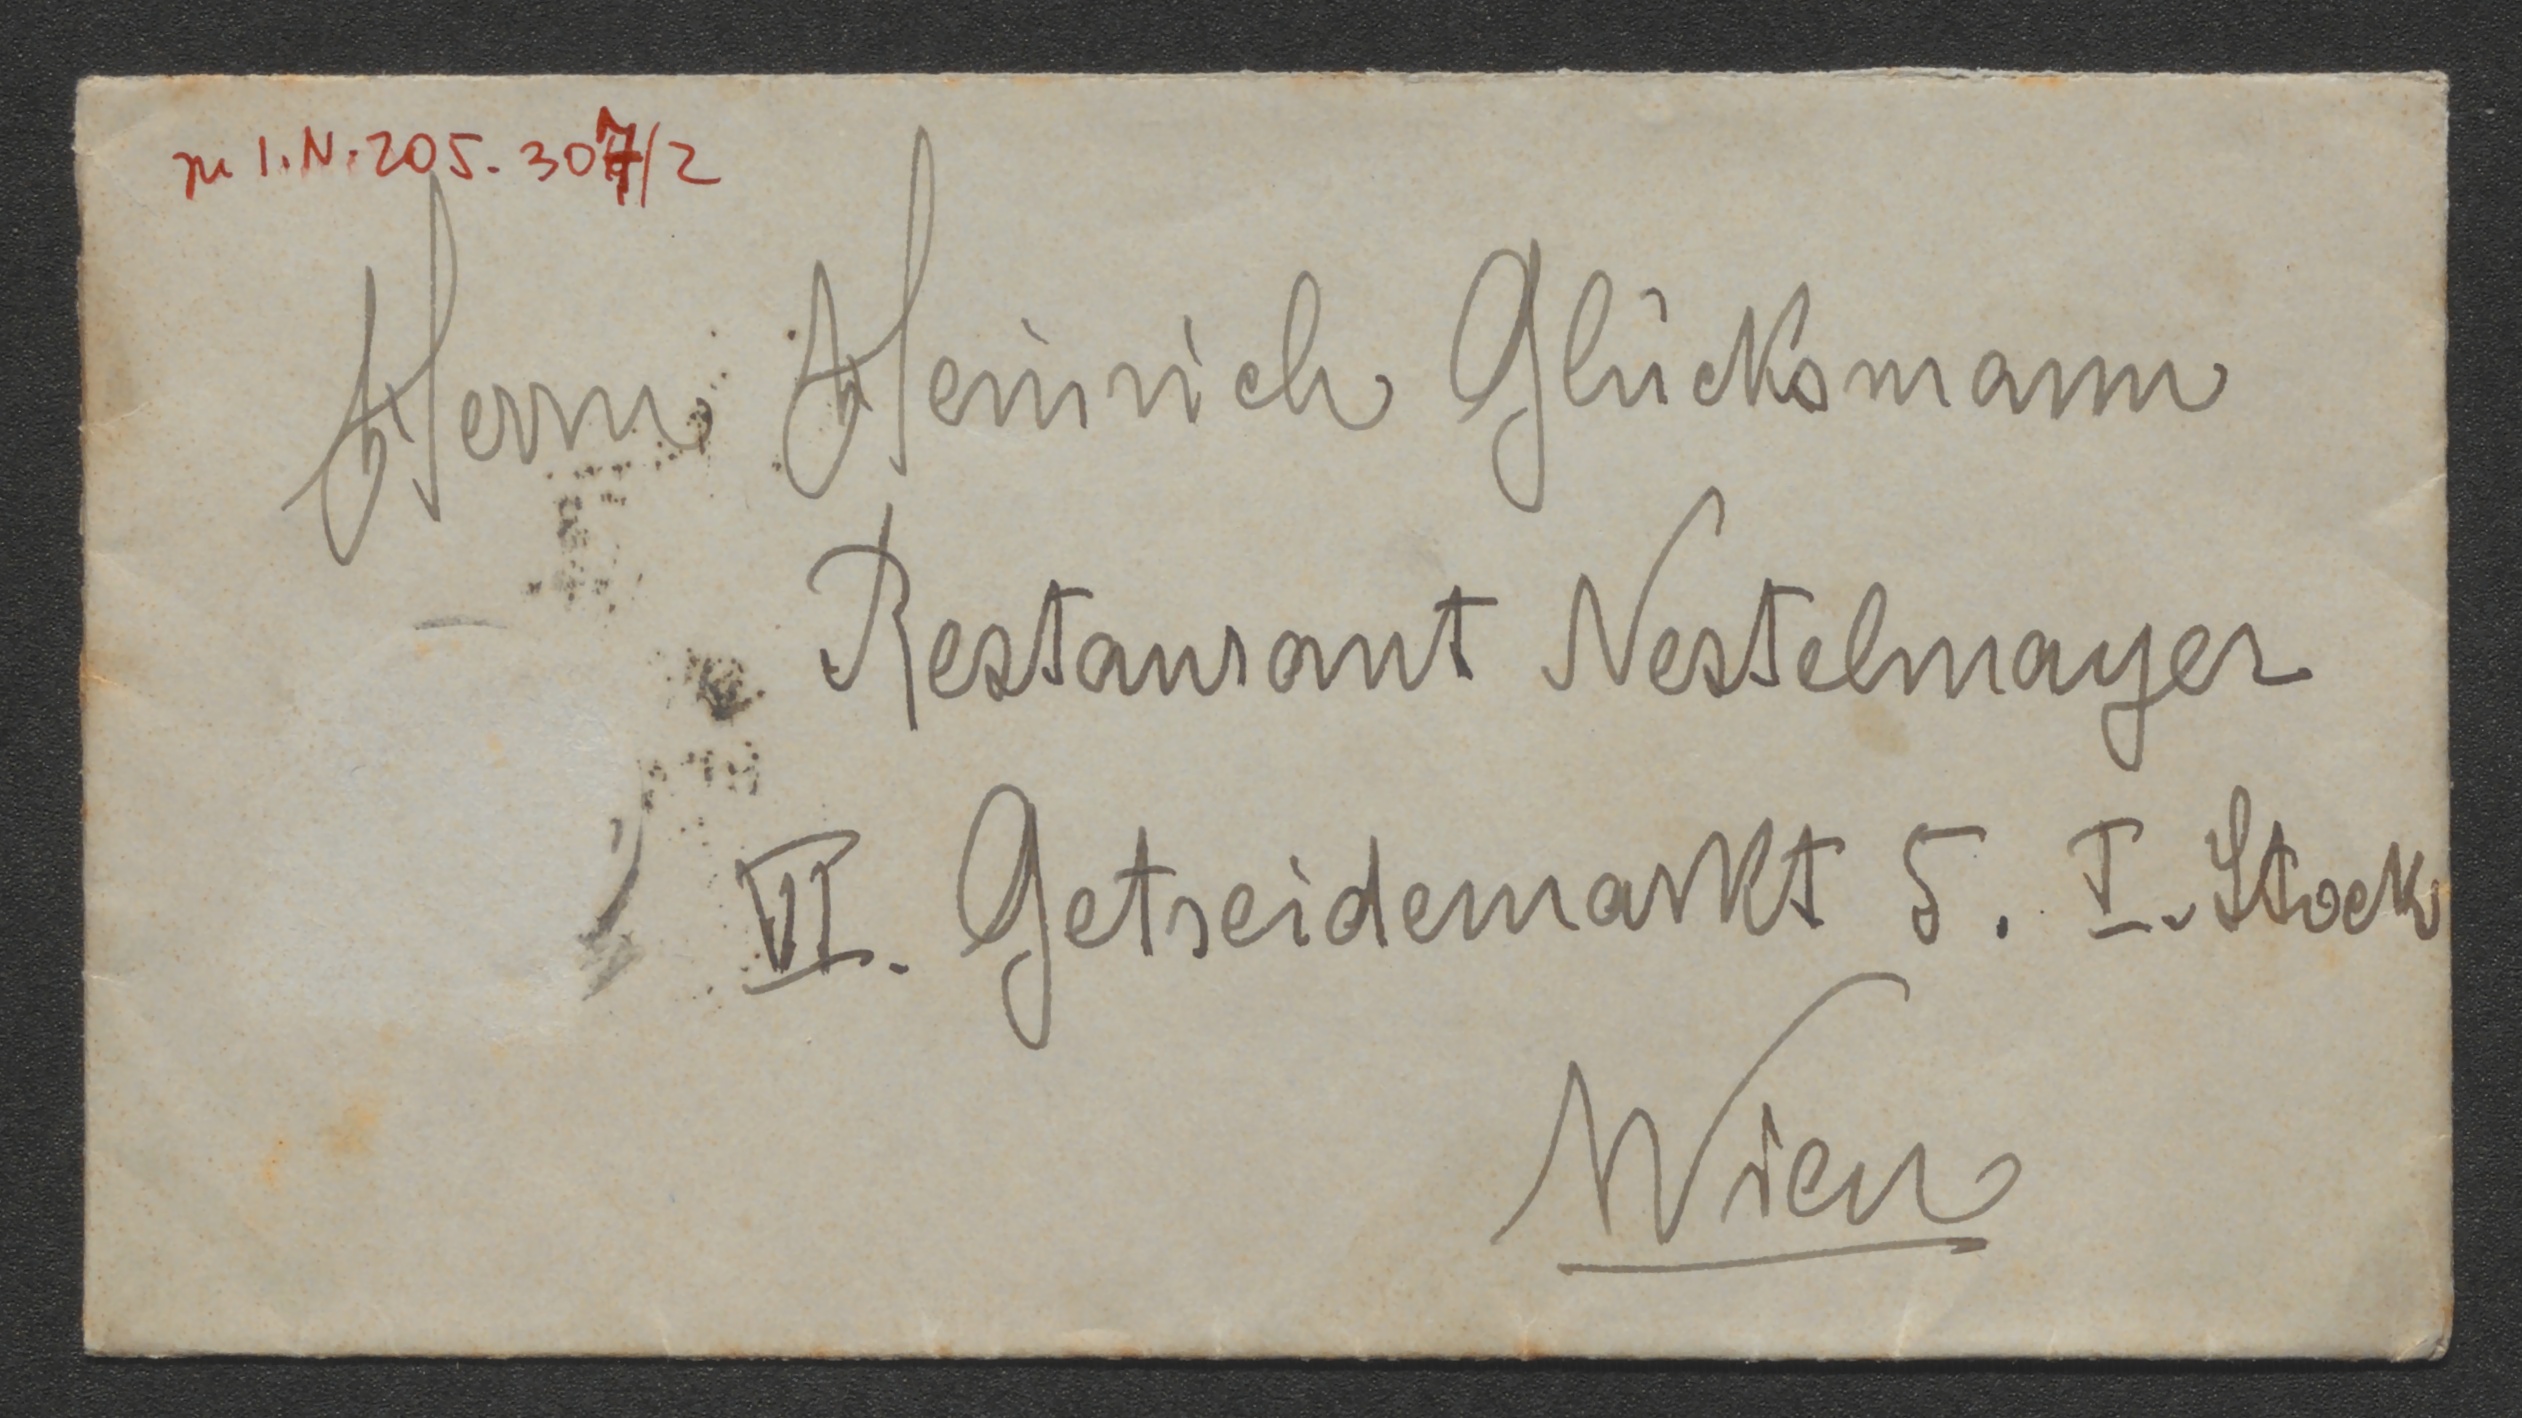 zu I.N. 205.307/2
Herrn Heinrich Glücksmann
Restaurant Nestelmayer
VI. Getreidemarkt 5. I. Stock
Wien